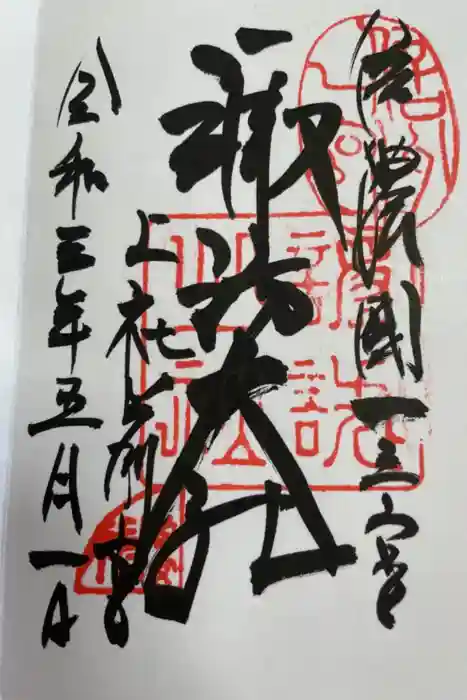 信濃國一之宮
諏訪大社
上社前宮
令和三年五月一日